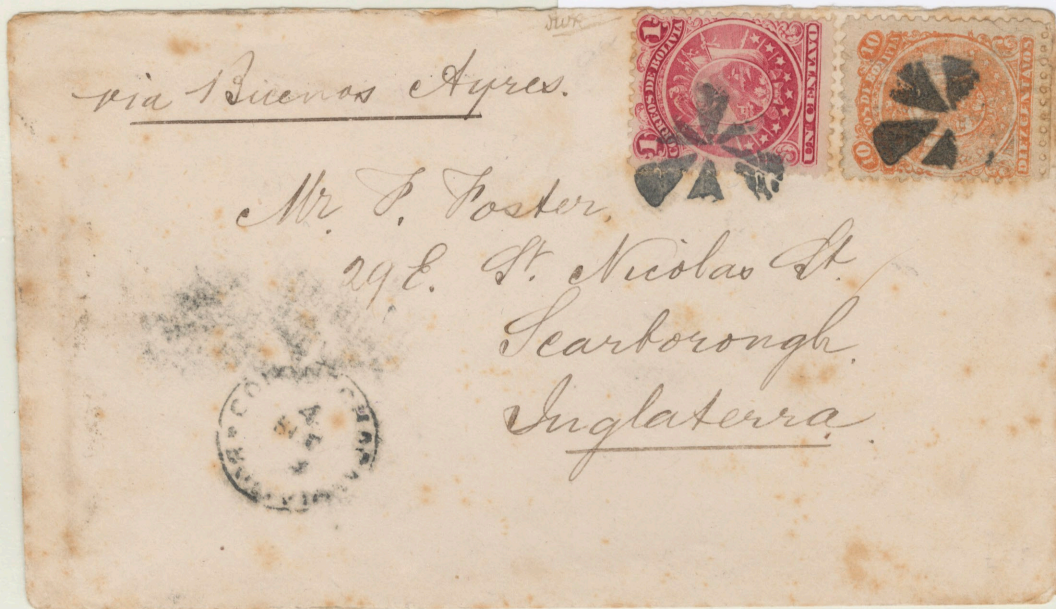 via Buenos Ayres.
1 CORREOS DE BOLIVIA 1
UN CENTAVO
10 10
DIEZ CENTAVOS
Mr. F. Foster,
29 E. St. Nicolas St.
Scarborough.
Inglaterra.